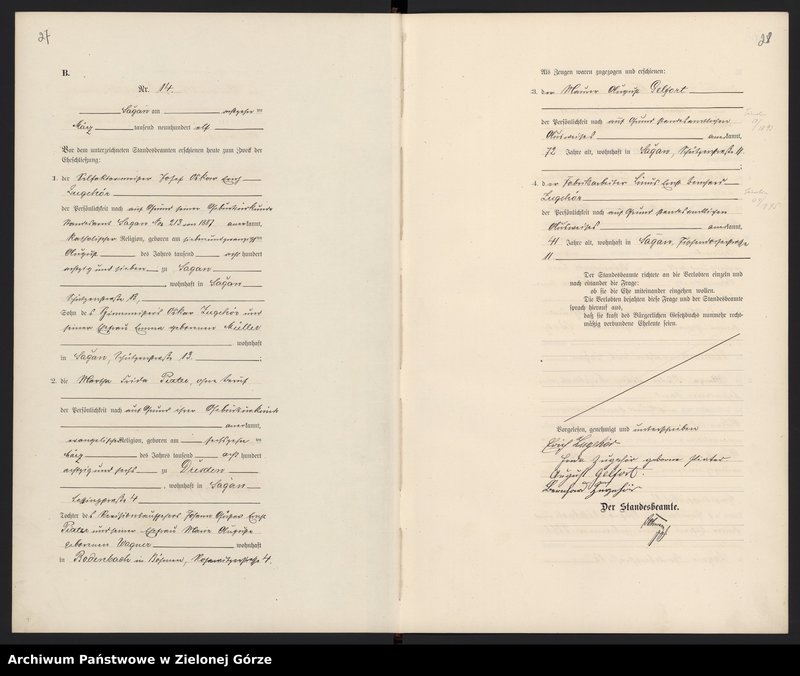 27
B.
Nr. 14.
Sagan am achtzehnten
März tausend neunhundert elf
Vor dem unterzeichneten Standesbeamten erschienen heute zum Zweck der
Eheschließung:
1. der Josef Oskar Erich
Zugehör
der Persönlichkeit nach auf Grund seiner Geburtsurkunde
Standesamt Sagan No 213 von 1887 anerkannt,
katholischer Religion, geboren am siebenundzwanzigsten
August des Jahres tausend acht hundert
achtzig und sieben zu Sagan
, wohnhaft in Sagan
Schützenstraße 13,
Sohn des Oskar Zugehör und
seiner Ehefrau Emma geborenen Müller
wohnhaft
in Sagan, Schützenstraße 13.
2. die Martha Frida Pixter, ohne Beruf
der Persönlichkeit nach auf Grund ihrer Geburtsurkunde
anerkannt,
evangelischer Religion, geboren am sechszehnten
März des Jahres tausend acht hundert
achtzig und sechs zu Dresden
, wohnhaft in Sagan
Lessingstraße 4
Tochter des Johann Gustav Emil
Pixter und seiner Ehefrau Marie Auguste
geborenen Wagner wohnhaft
in Bodenbach in Böhmen, 4.
28
Als Zeugen waren zugezogen und erschienen:
3. der Maurer August Gelfort
der Persönlichkeit nach auf Grund standesamtlichen
Ausweises anerkannt,
72 Jahre alt, wohnhaft in Sagan, Schützenstraße 11.
4. der Fabrikarbeiter Linus Emil Bernhard
Zugehör
der Persönlichkeit nach auf Grund standesamtlichen
Ausweises anerkannt,
41 Jahre alt, wohnhaft in Sagan,
11
Der Standesbeamte richtete an die Verlobten einzeln und
nach einander die Frage:
ob sie die Ehe miteinander eingehen wollen.
Die Verlobten bejahten diese Frage und der Standesbeamte
sprach hierauf aus,
daß sie kraft des Bürgerlichen Gesetzbuchs nunmehr recht-
mäßig verbundene Eheleute seien.
Vorgelesen, genehmigt und unterschrieben
Erich Zugehör
Frida Zugehör geborne Pixter
August Gelfort
Bernhard Zugehör
Der Standesbeamte.
Archiwum Państwowe w Zielonej Górze